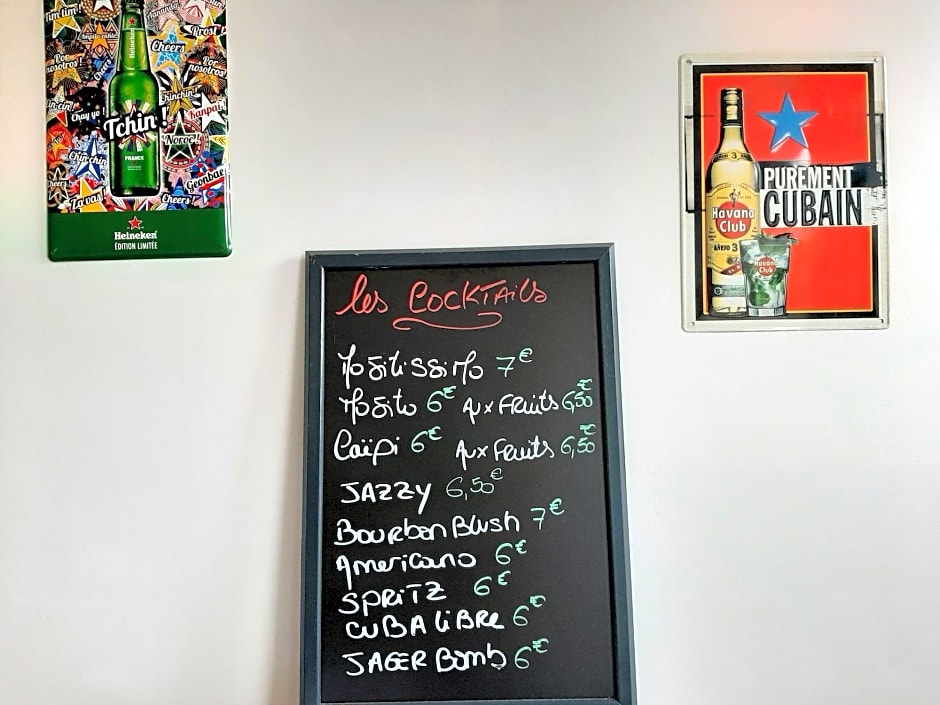 Tim tim!
Prost!
Cheers
Por nosotros!
Por nosotros!
Heineken
Chay yo!
Chinchin!
Kanpai!
Tchin!
Noroc!
FRANCE
Chin chin
Geonbae
Cheers!
Za vas!
Cheers!
Heineken
ÉDITION LIMITÉE
Havana
Club
AÑEJO 3
PUREMENT
CUBAIN
Havana
Club
les COCKTAils
Mojitissimo 7€
Mojito 6€ Aux Fruits 6,50€
Caïpi 6€ Aux Fruits 6,50€
JAZZY 6,50€
Bourbon Blush 7€
Americano 6€
SPRITZ 6€
CUBA LiBRE 6€
JAGER Bomb 6€